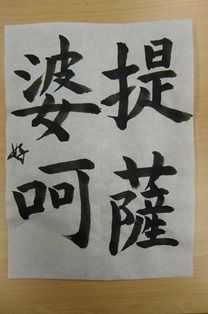 提薩
婆呵
好